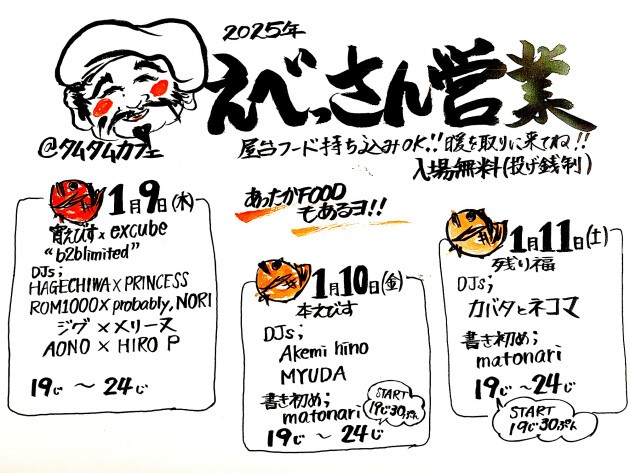 2025年
えべっさん営業
@タムタムカフェ
屋台フード持ち込みOK!!暖を取りに来てね!!
入場無料(投げ銭制)
あったかFOOD
もあるヨ!!
1月9日(木)
宵えびす×excube
"b2blimited"
DJs;
HAGECHIWA×PRINCESS
ROM1000×probably,NORI
ジグ×メリーヌ
AONO×HIRO P
19じ～24じ
1月10日(金)
本えびす
DJs;
Akemi hino
MYUDA
書き初め;
matonari
START
19じ30ぷん
19じ～24じ
1月11日(土)
残り福
DJs;
カバタとネコマ
書き初め;
matonari
19じ～24じ
START
19じ30ぷん